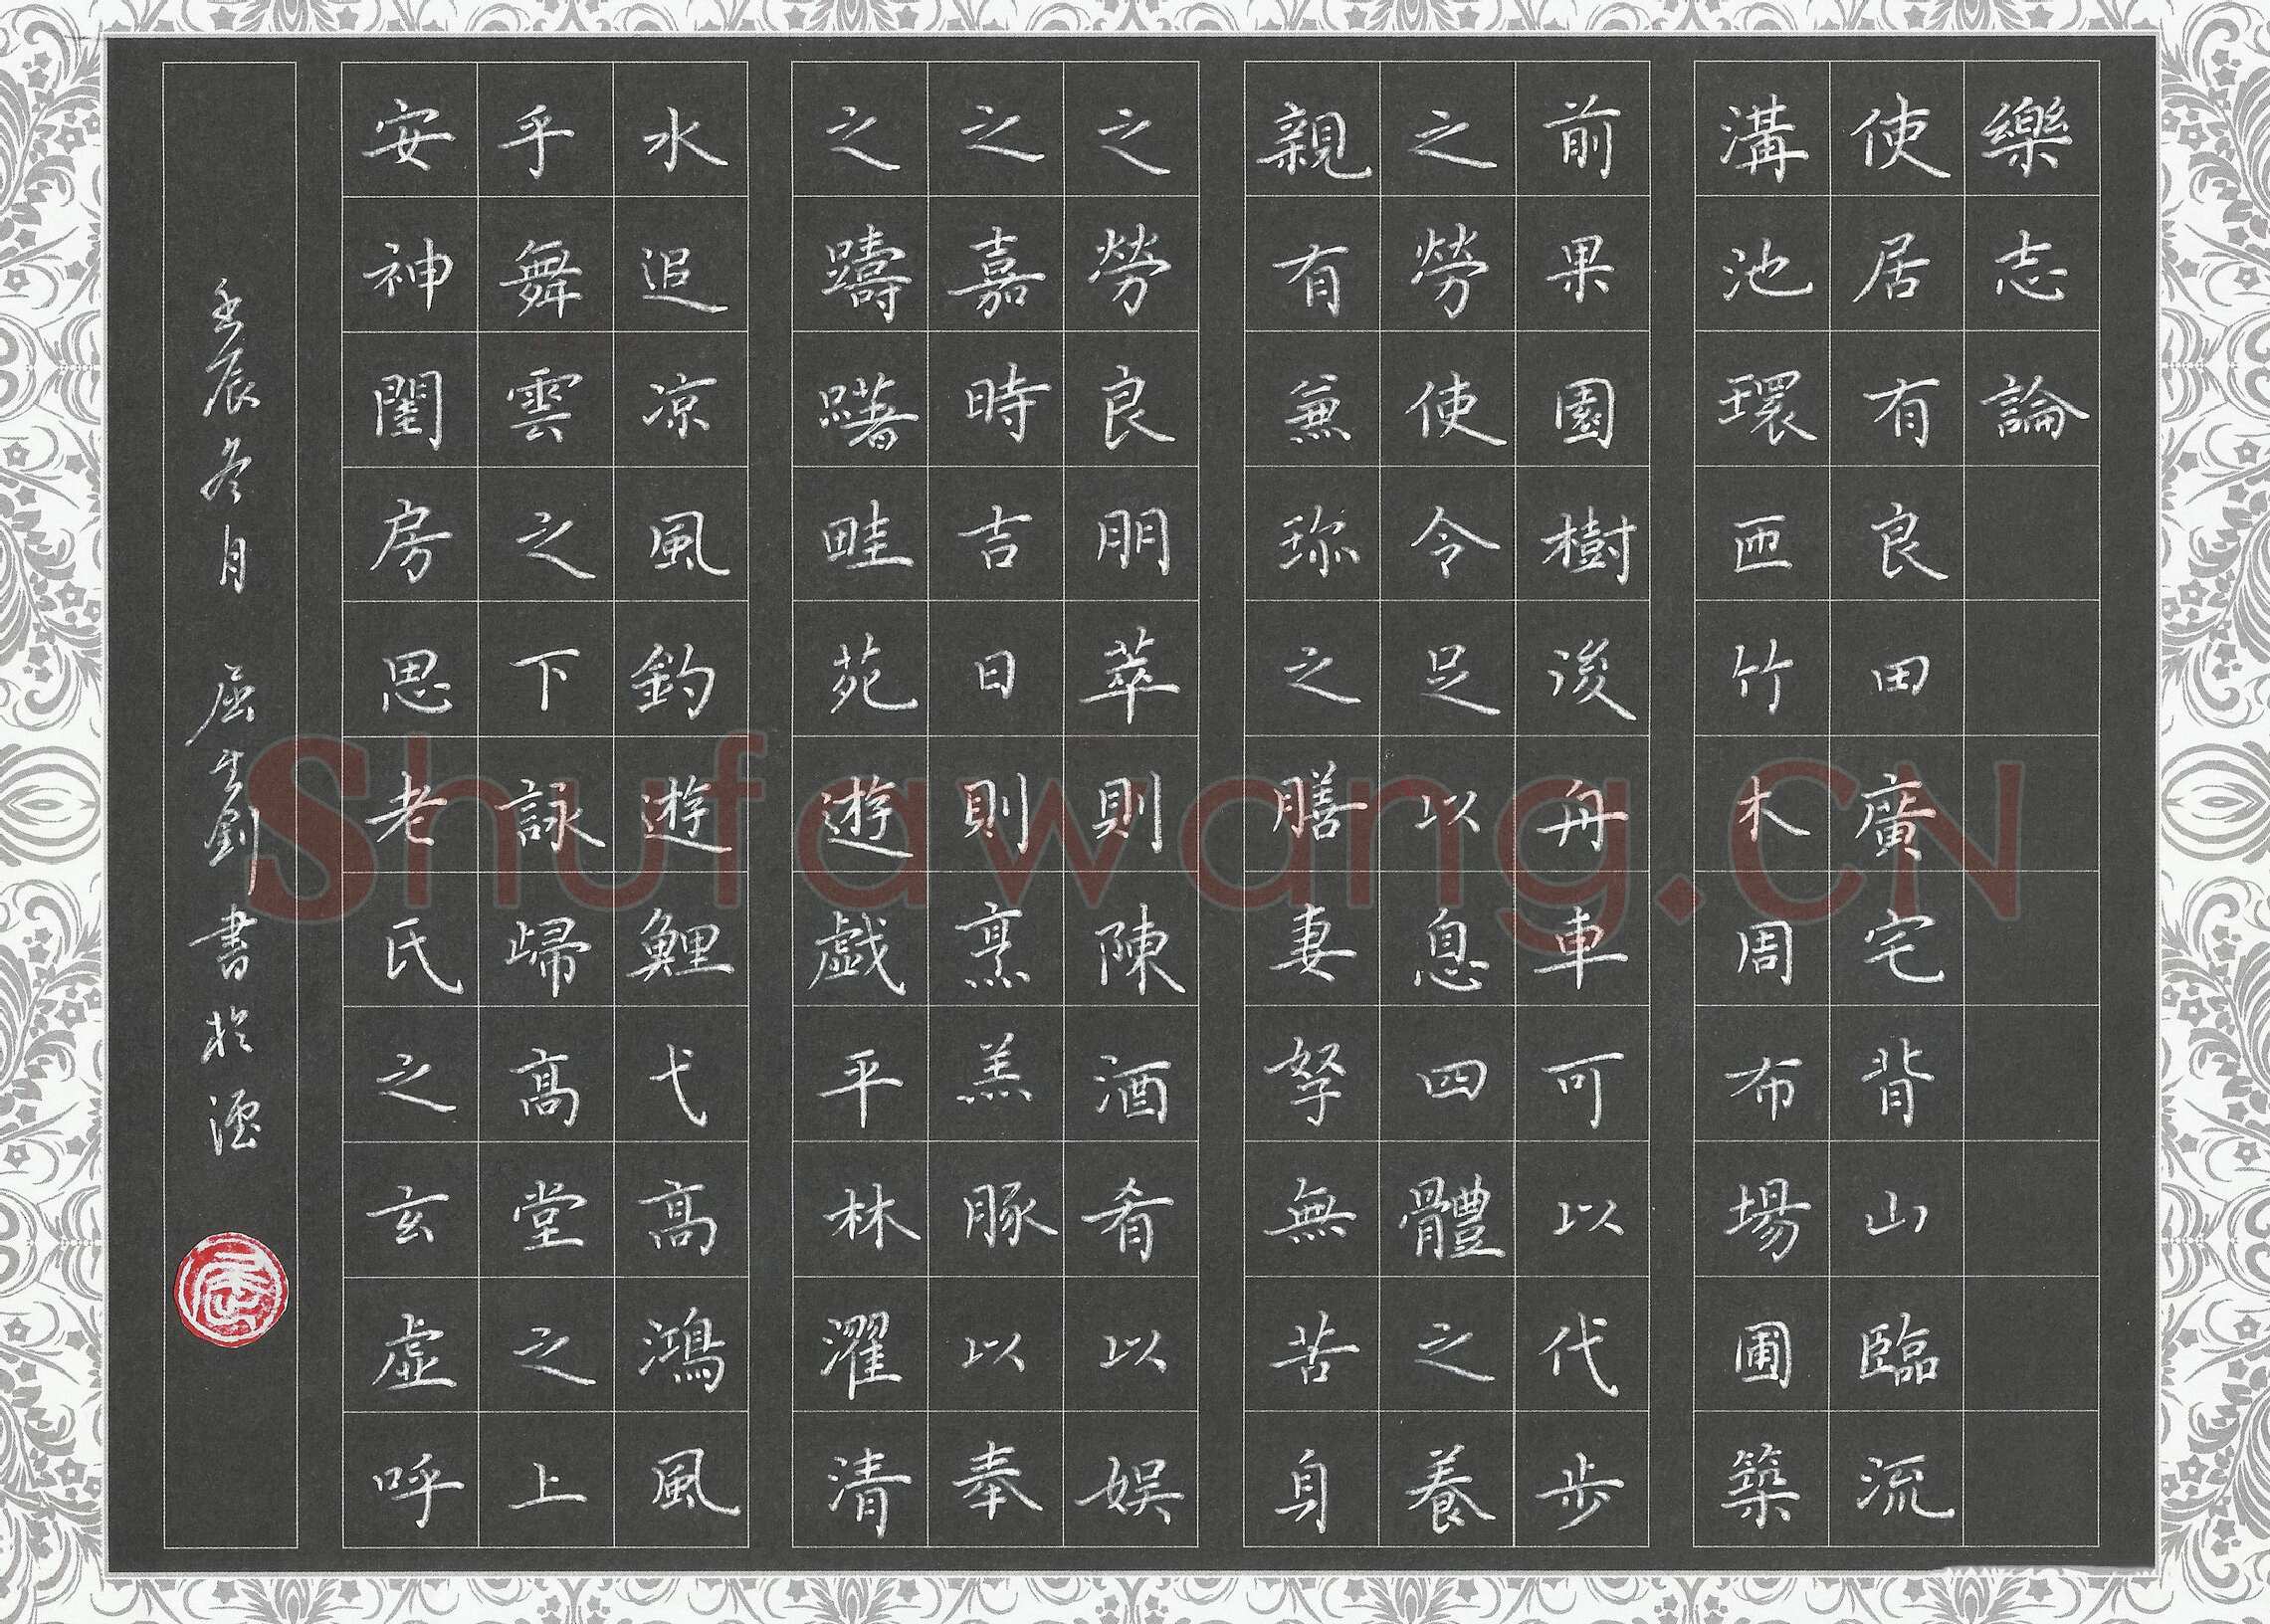 樂志論
使居有良田廣宅背山臨流
溝池環匝竹木周布場圃築
前果園樹後舟車可以代步
之勞使令足以息四體之養
親有兼珎之膳妻孥無苦身
之勞良朋萃則陳酒肴以娛
之嘉時吉日則烹羔豚以奉
之躊躇畦苑遊戲平林濯清
水追凉風釣遊鯉弋高鴻風
乎舞雲之下詠歸高堂之上
安神閨房思老氏之玄虛呼
壬辰冬月 屈 書於
Shufawang.CN